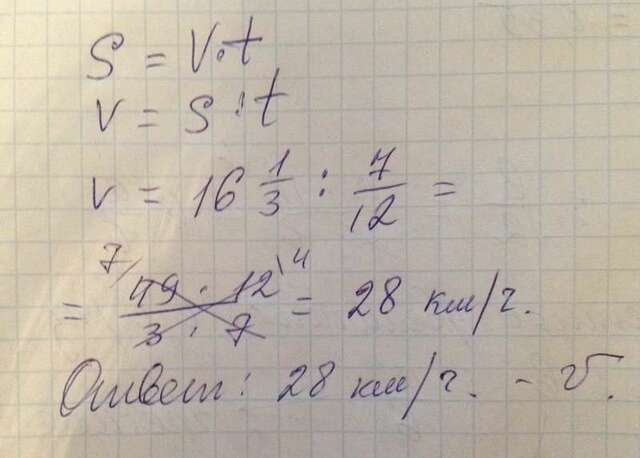 S = V·t
v = S : t
v = 16 1/3 : 7/12 =
= 7/ 49 · 12 \4 / 3 · 7 = 28 км/ч.
Ответ: 28 км/ч. - v.